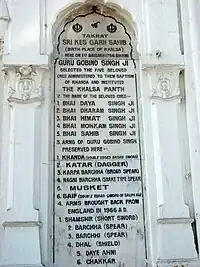 TAKHAT
SRI KES GARH SAHIB
(BIRTH PLACE OF KHALSA)
HERE ON 1ST
GURU GOBIND SINGH JI
SELECTED THE FIVE BELOVED
ONES ADMINISTERED TO THEM BAPTISM
OF KHANDA AND INSTITUTED
THE KHALSA PANTH
2. THE NAME OF THE BELOVED ONES-
1. BHAI DAYA SINGH JI
2. BHAI DHARAM SINGH JI
3. BHAI HIMAT SINGH JI
4. BHAI MOHKAM SINGH JI
5. BHAI SAHIB SINGH JI
3. ARMS OF GURU GOBIND SINGH
PRESERVED HERE-
1. KHANDA (DOUBLE EDGED SWORD)
2. KATAR (DAGGER)
3. KARPA BARCHHA (BROAD SPEAR)
4. NAGNI BARCHHA (SNAKE TYPE SPEAR)
5 MUSKET
6. SAIF (DOUBLE EDGED SWORD OF
4. ARMS BROUGHT BACK FROM
ENGLAND IN 1966 A.D.
1. SHAMSHIR (SHORT SWORD)
2. BARCHHA (SPEAR)
3. BARCHHI (SPEAR)
4. DHAL (SHIELD)
5. DAYE AHNI
6. CHAKKAR